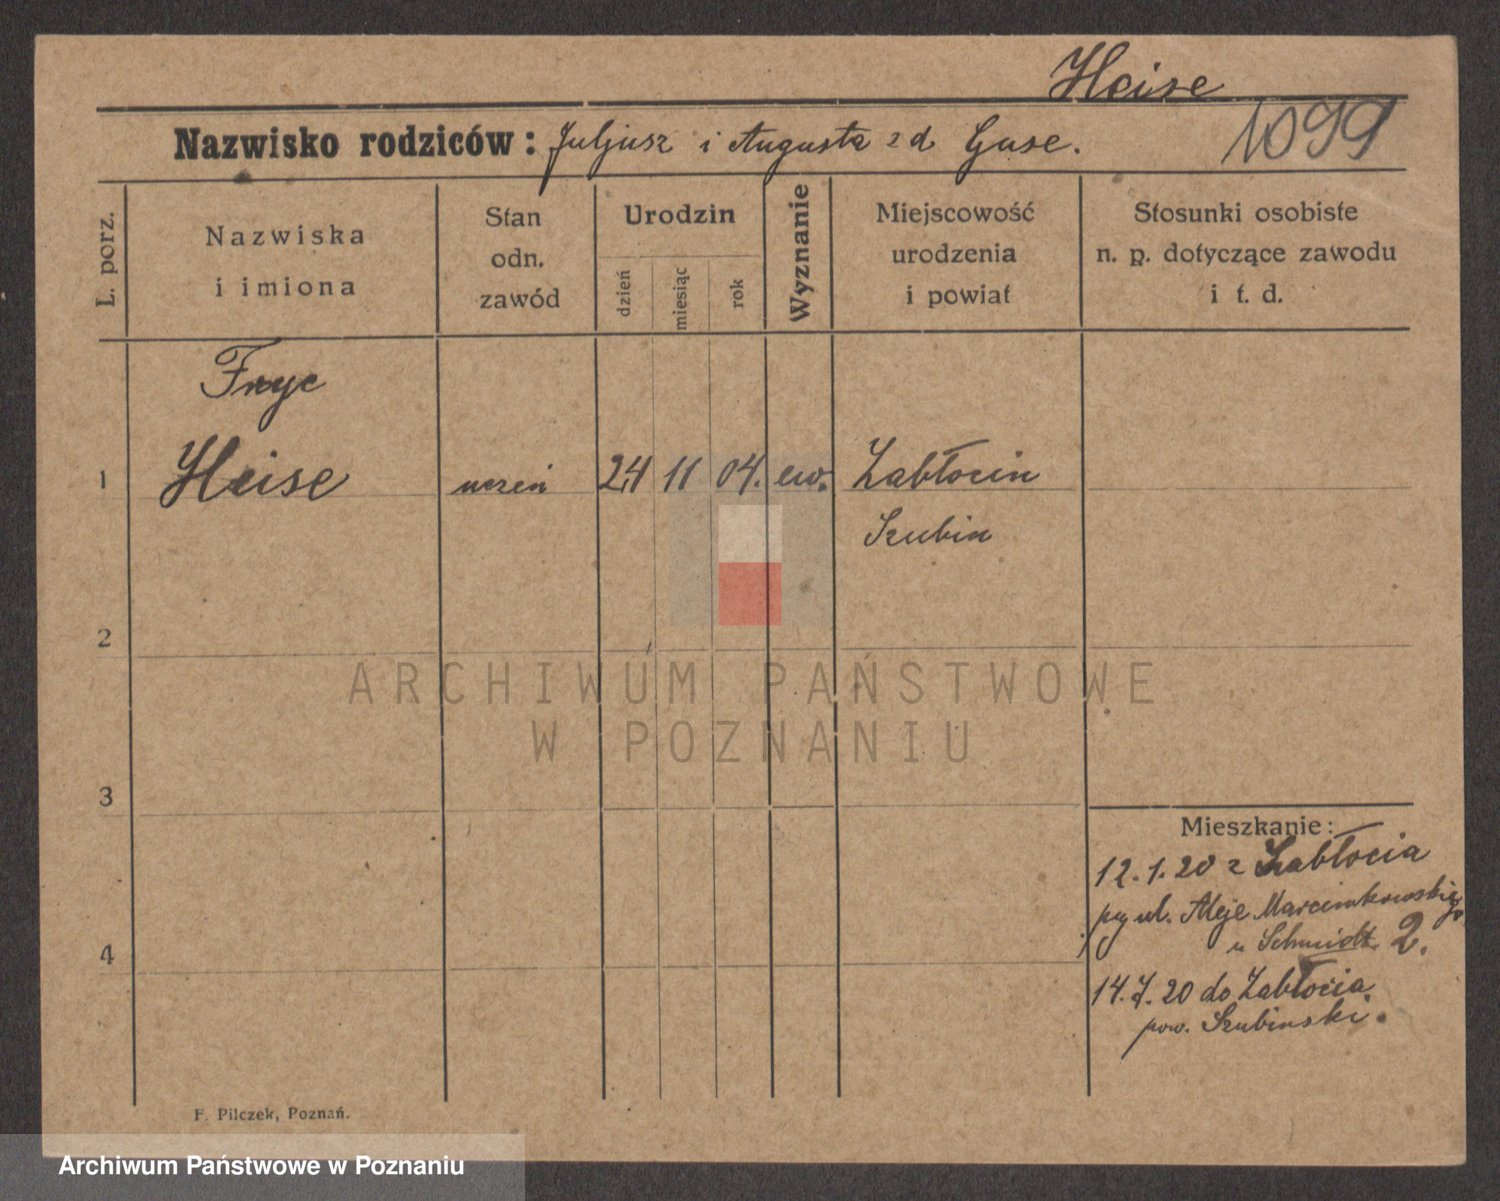 Heise
Nazwisko rodziców: Juljusz i Augusta z d. Guse.
1099
L. porz.
Nazwiska
i imiona
Stan
odn.
zawód
Urodzin
dzień
miesiąc
rok
Wyznanie
Miejscowość
urodzenia
i powiat
Stosunki osobiste
n. p. dotyczące zawodu
i t. d.
Fryc
1 Heise uczeń 24 11 04. ew. Zabłocin
Szubin
2
ARCHIWUM PAŃSTWOWE
W POZNANIU
3
Mieszkanie:
12.1.20 z Zabłocia
py ul. Aleje Marcinkowskiego
u Schmidt 2.
4
14.7.20 do Zabłocia
pow. Szubinski.
F. Pilczek, Poznań.
Archiwum Państwowe w Poznaniu